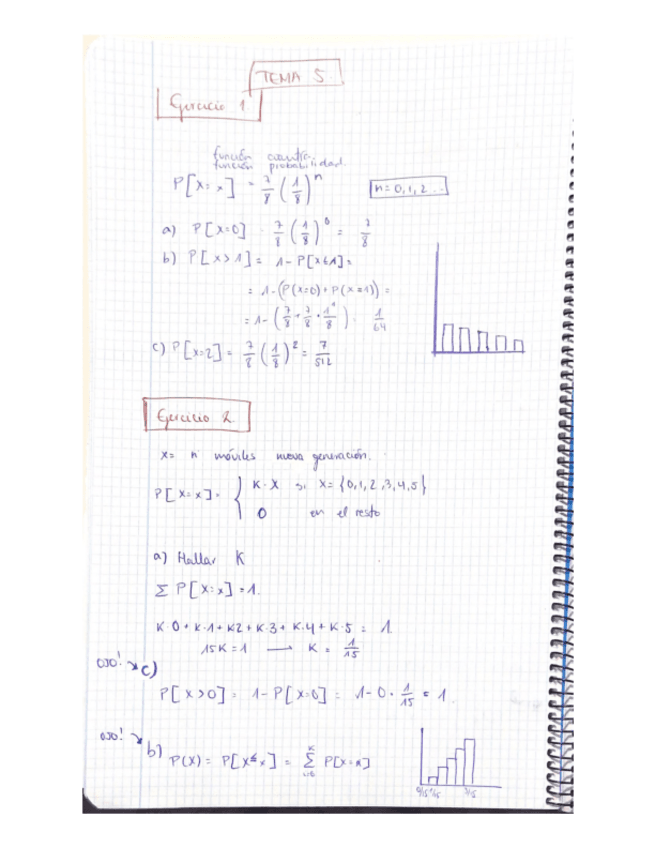 TEMA 5
Ejercicio 1.
función cuantía.
función probabilidad.
P[X=x] = 7/8 (1/8)^n
n=0,1,2...
a) P[X=0] 7/8 (1/8)^0 = 7/8
b) P[X>1] = 1-P[X≤1]=
= 1-(P(X=0)+P(X=1)) =
= 1-(7/8+7/8·1/8^1). 1/64
c) P[X=2] = 7/8 (1/8)^2 = 7/512
Ejercicio 2.
X= nº móviles nueva generación.
P[X=x]= { K·X si X={0,1,2,3,4,5}
0 en el resto
a) Hallar K
Σ P[X=x]=1.
K·0+K·1+K2+K·3+K·4+K·5 = 1.
15K=1 → K = 1/15
ojo! c)
P[X>0] = 1-P[X=0] = 1-0·1/15 = 1.
ojo! b)
P(X) = P[X≤x] = Σ P[X=x]
0/15 1/15